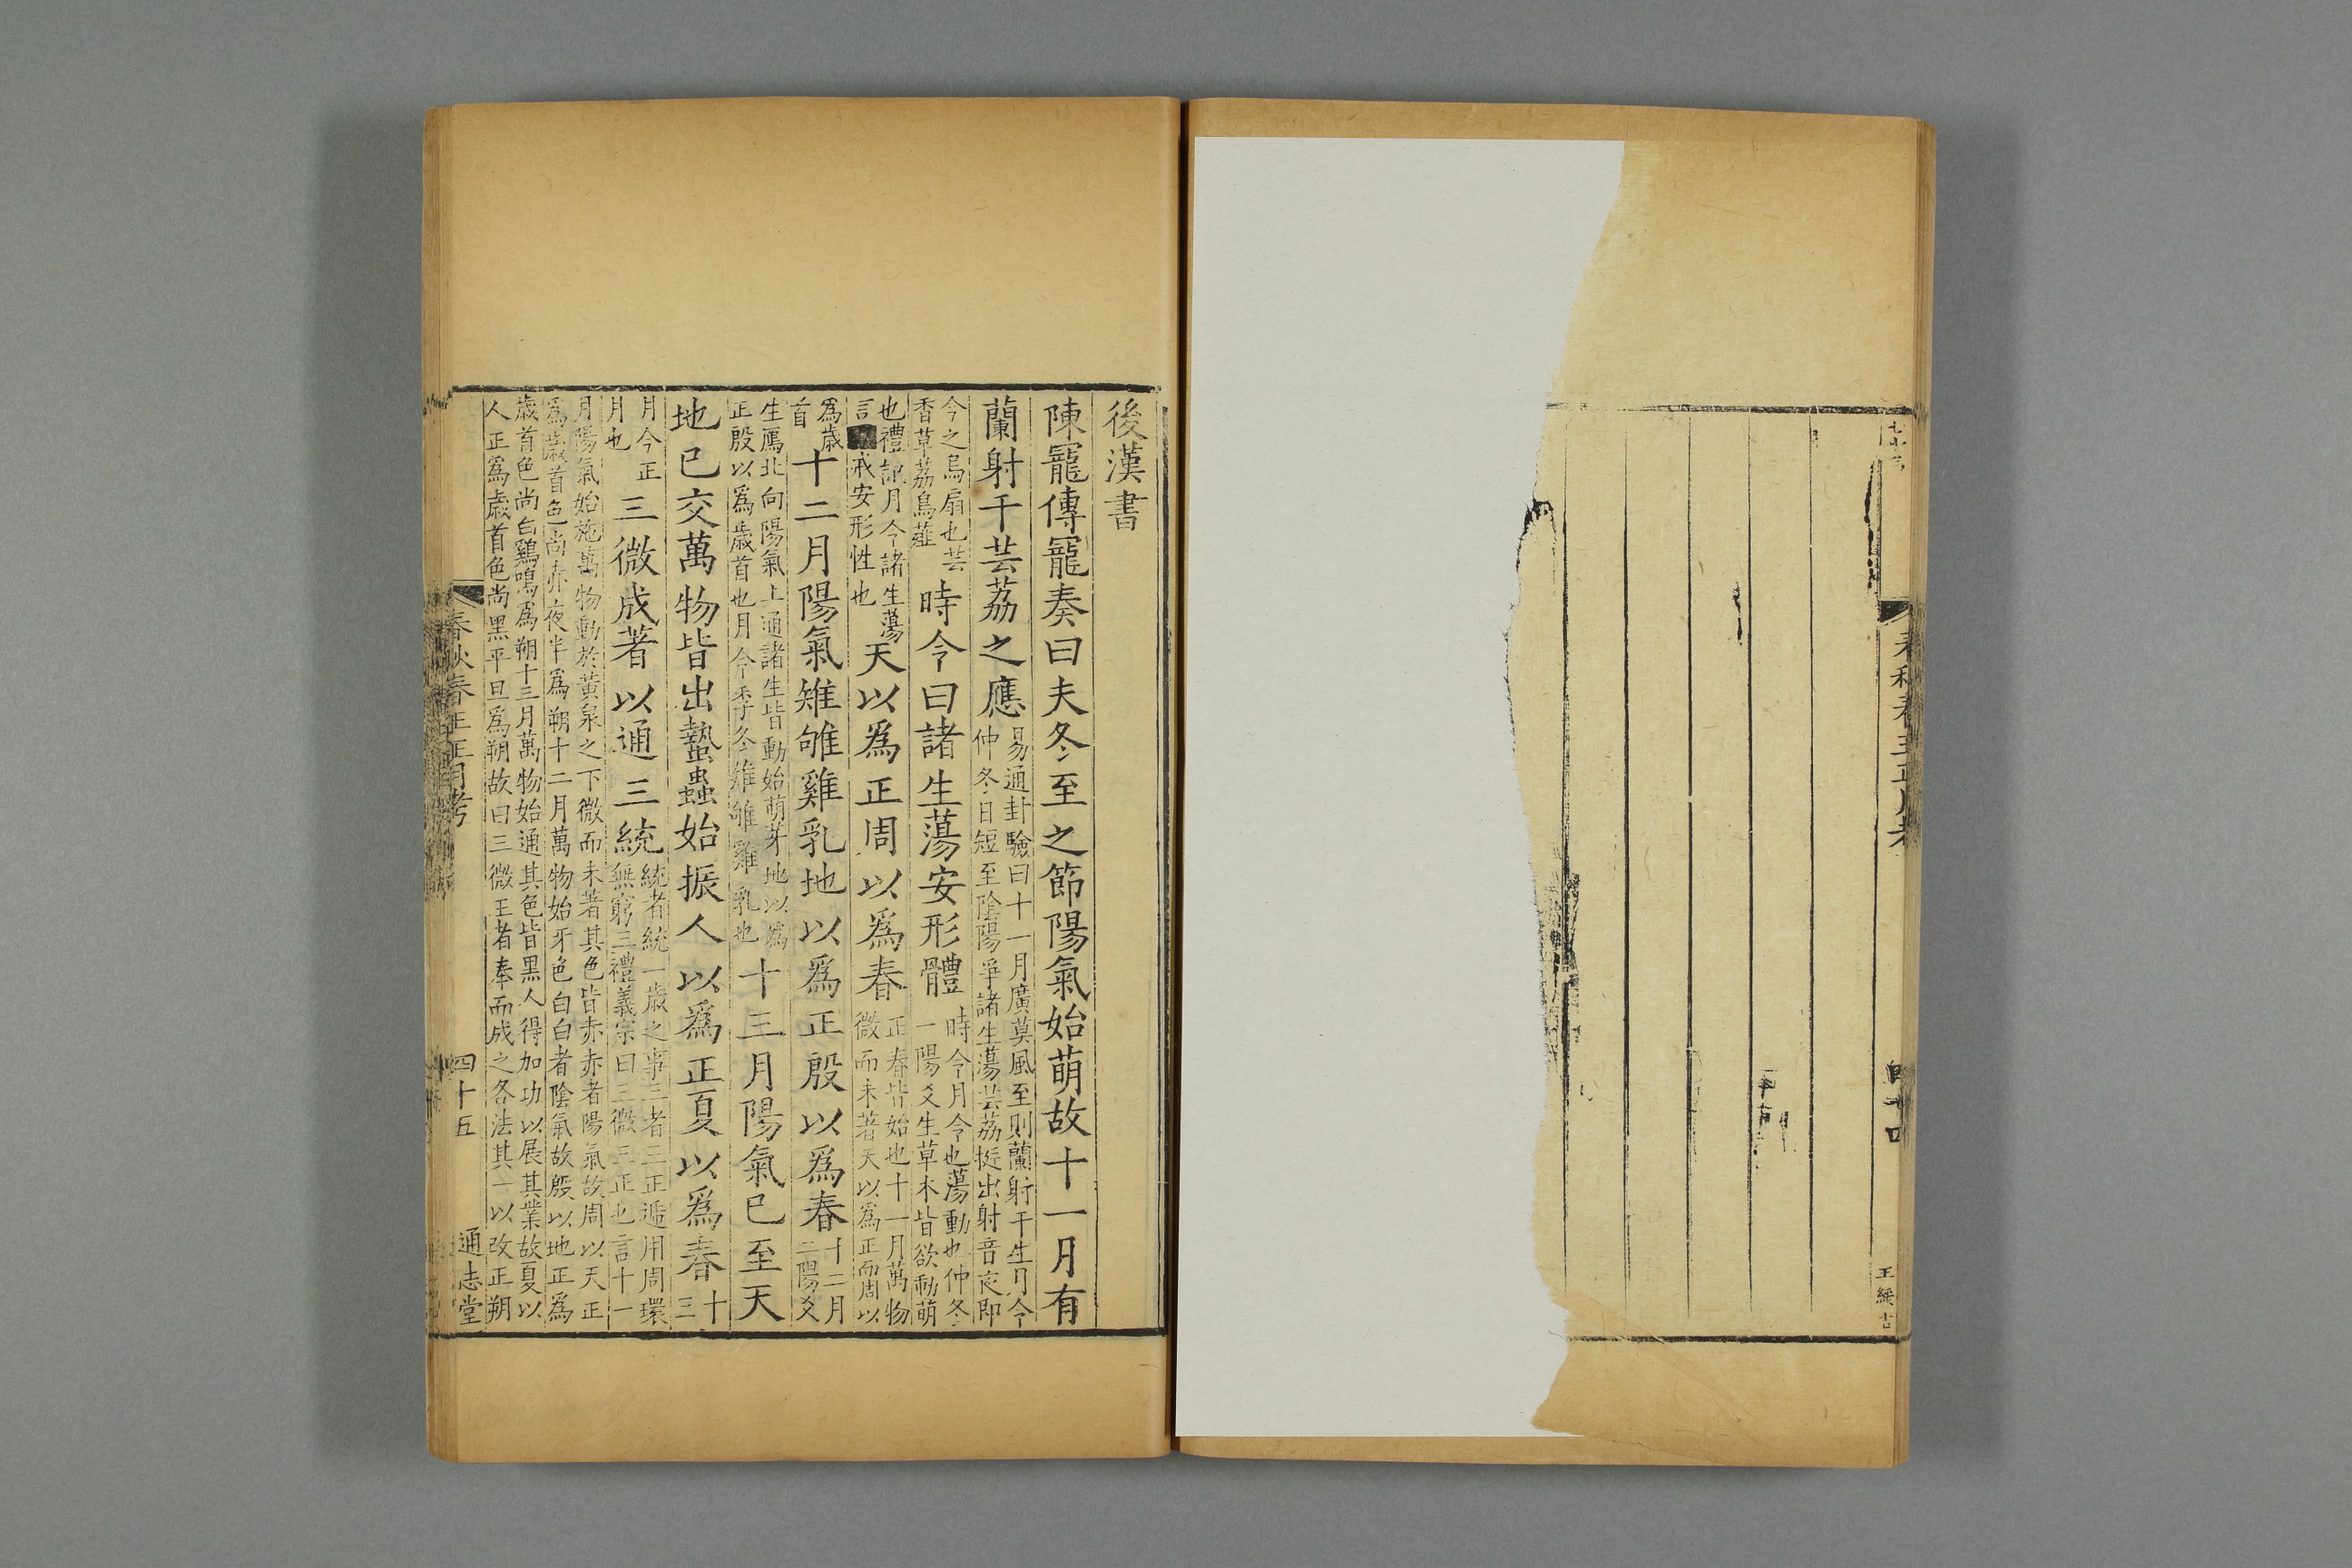 春秋春王正月考
四十四
後漢書
陳寵傳寵奏曰夫冬至之節陽氣始萌故十一月有
蘭射干芸荔之應易通封驗曰十一月廣莫風至則蘭射干生月令仲冬日短至陰陽爭諸生蕩芸荔挺出射音夜即
今之烏扇也芸香草荔烏薤時令曰諸生蕩安形體時令月令也蕩動也仲冬一陽爻生草木皆欲動萌
也禮記月令諸生蕩言戒安形性也天以爲正周以爲春正春皆始也十一月萬物微而未著天以爲正而周以
爲歲首十二月陽氣雉雊雞乳地以爲正殷以爲春十二月二陽爻
生鴈北向陽氣上通諸生皆動始萌芽地以爲正殷以爲歲首也月令季冬雉雊雞乳也十三月陽氣已至天
地已交萬物皆出蟄蟲始振人以爲正夏以爲春十三
月今正月也三微成著以通三統統者統一歲之事三者三正遞用周環無窮三禮義宗曰三微三正也言十一
月陽氣始施萬物動於黃泉之下微而未著其色皆赤赤者陽氣故周以天正
爲歲首色尚赤夜半爲朔十二月萬物始牙色白白者陰氣故殷以地正爲
歲首色尚白鷄鳴爲朔十三月萬物始通其色皆黑人得加功以展其業故夏以
人正爲歲首色尚黑平旦爲朔故曰三微王者奉而成之各法其一以改正朔
春秋春王正月考
四十五
通志堂